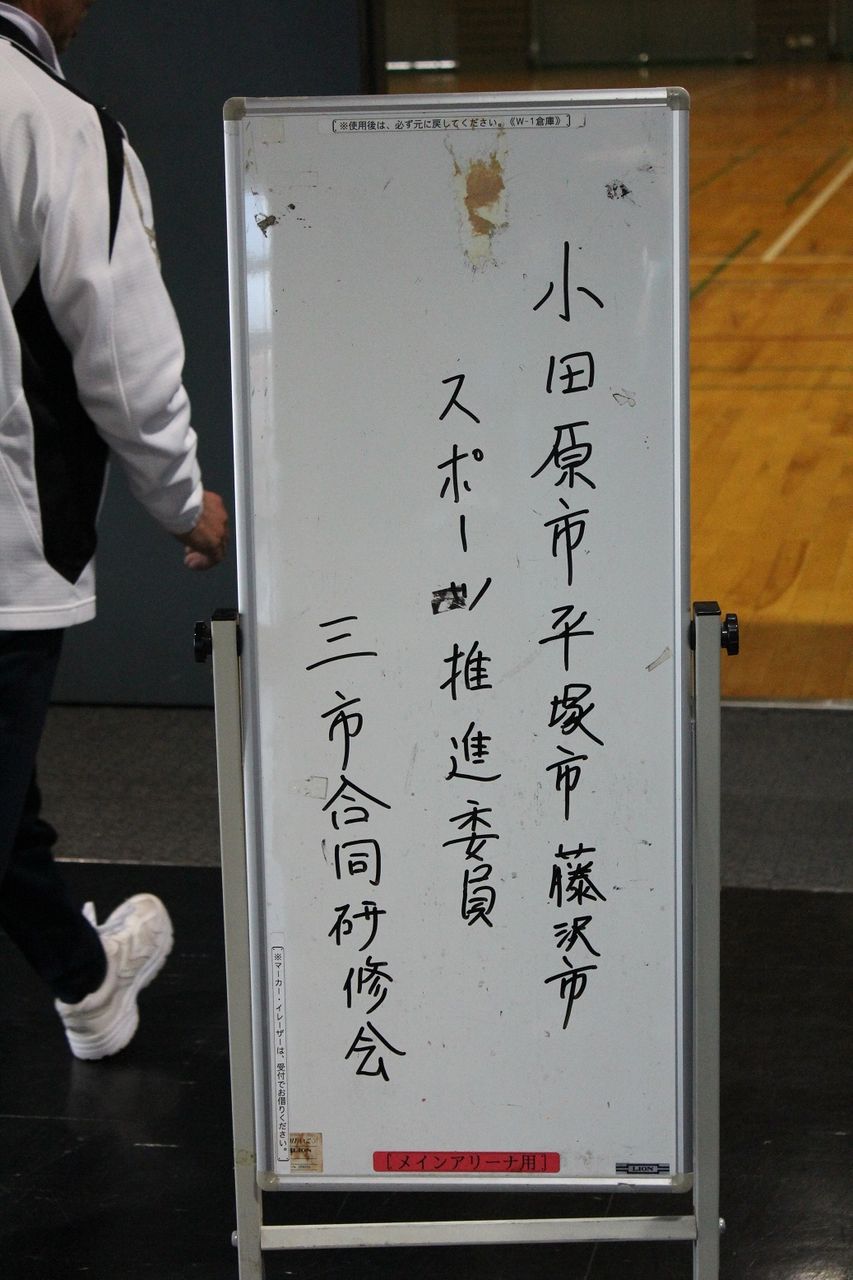 [※使用後は、必ず元に戻してください。《W-1倉庫》]
小田原市平塚市藤沢市
スポーツ推進委員
三市合同研修会
[※マーカー・イレーザーは、受付でお借りください。]
[メインアリーナ用]
LION